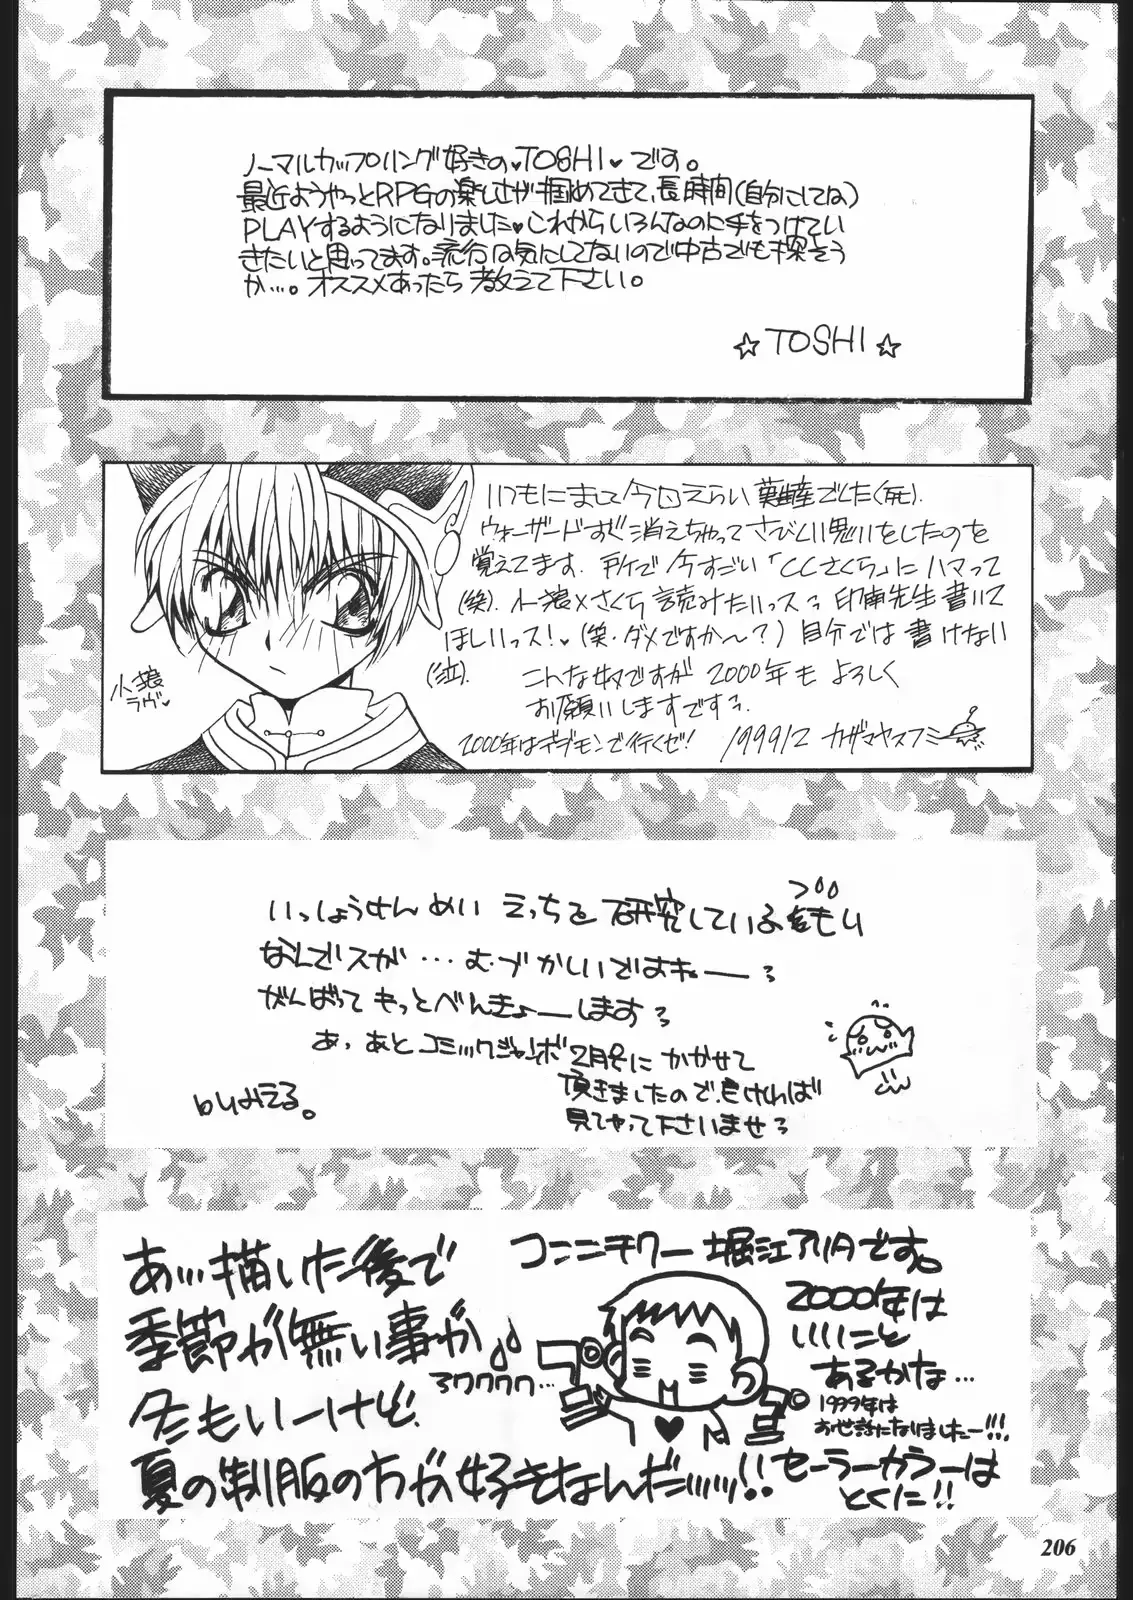 ノーマルカップリング好きの♥TOSHI♥です。
最近ようやっとRPGの楽しさが掴めてきて、長時間(自分にしてね)
PLAYするようになりました♥これからいろんなのに手をつけてい
きたいと思ってます。流行は気にしてないので中古でも探そう
か…。オススメあったら教えて下さい。
☆TOSHI☆
いつもにまして今回えらい難産でした(死).
ウォーザードすぐ消えちゃってさびしい思いをしたのを
覚えてます. 所で今すごい「CCさくら」にハマって
(笑). 小狼×さくら読みたいっス。印南先生書いて
ほしいっス!♥(笑・ダメですか〜?)自分では書けない
(泣). こんな奴ですが2000年もよろしく
お願いしますです。
2000年はデジモンで行くぜ! 199912 カザマヤスフミ
小狼
ラヴ♥
いっしょうせんめい えっちを研究しているつもり
なんでスが…むづかしいでよねー。
がんばってもっとべんきょーします。
あ、あとコミックジャンボ2月号にかかせて
頂きましたので、良ければ
見てやって下さいませ。
byみえる。
コニニチワー 堀江アリタです。
2000年は
いいこと
あるかな…
1999年は
お世話になりましたー!!!
あ…描いた後で
季節が無い事が♪
冬もいーけど、
夏の制服の方が好きなんだ!!
セーラーカラーは
とくに!!
206